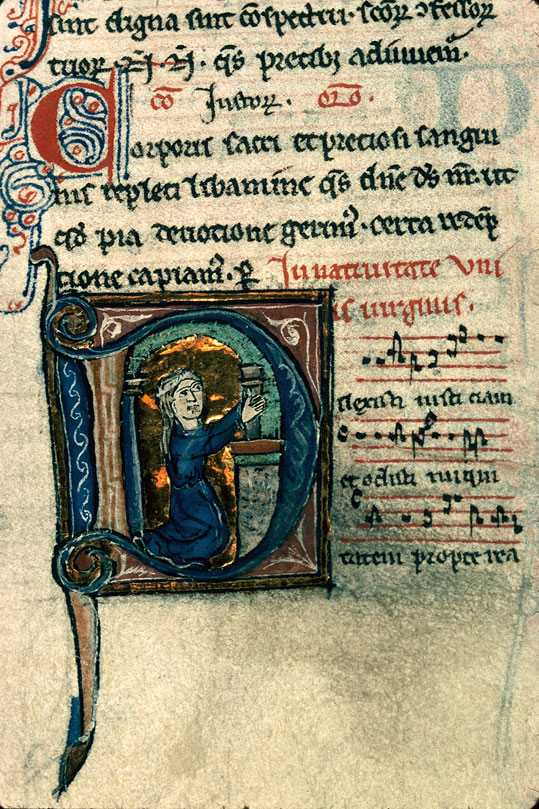 sint digna sint ɔspectui. scōꝝ ɔfessoꝝ
tuoꝝ .N. N. q̄s precibꝫ adiuuem̄.
cō Iustoꝝ. orō.
Corporis sacri et preciosi sangui
nis repleti libamine q̄s dn̄e ds̄ nr̄. ut
qd̄ pia deuotione gerim᷒. certa redēp
tione capiam᷒. ꝑ In natiuitate vni
is uirginis.
Dilexisti iusticiam
et odisti iniqui
tatem propterea